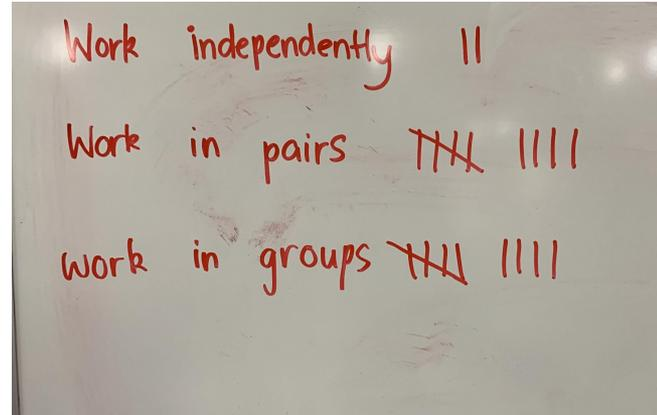 Work independently ||
Work in pairs 𝍸 ||||
work in groups 𝍸 ||||